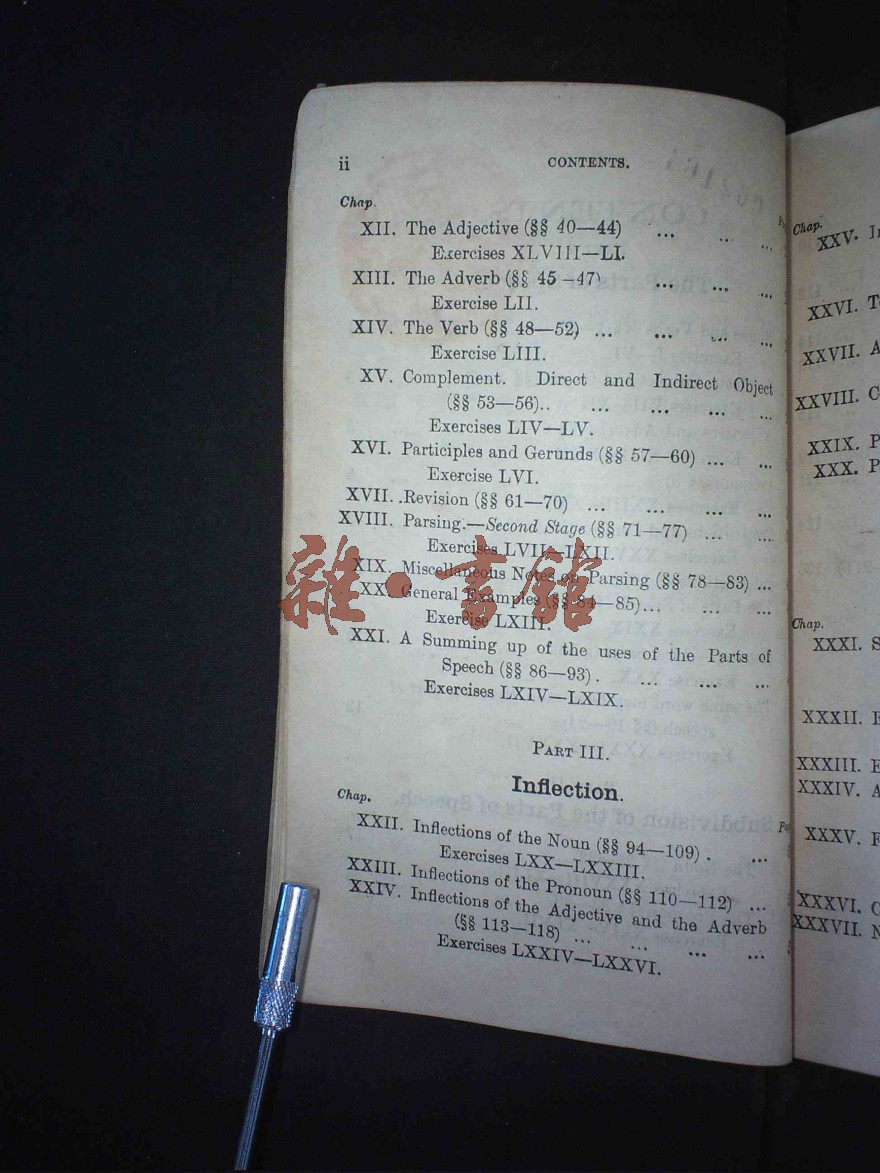 ii CONTENTS.
Chap.
XII. The Adjective (§§ 40—44) ... ... ...
Exercises XLVIII—LI.
XIII. The Adverb (§§ 45—47) ... ... ...
Exercise LII.
XIV. The Verb (§§ 48—52) ... ... ... ...
Exercise LIII.
XV. Complement. Direct and Indirect Object
(§§ 53—56).. ... ... ... ...
Exercises LIV—LV.
XVI. Participles and Gerunds (§§ 57—60) ... ...
Exercise LVI.
XVII. Revision (§§ 61—70) ... ... ... ...
XVIII. Parsing.—Second Stage (§§ 71—77) ... ...
Exercises LVII—LXII.
XIX. Miscellaneous Notes on Parsing (§§ 78—83) ...
XX. General Examples (§§ 84—85)... ... ...
Exercise LXIII.
XXI. A Summing up of the uses of the Parts of
Speech (§§ 86—93) . ... ... ...
Exercises LXIV—LXIX.
PART III.
Inflection.
Chap.
XXII. Inflections of the Noun (§§ 94—109) . ...
Exercises LXX—LXXIII.
XXIII. Inflections of the Pronoun (§§ 110—112) ...
XXIV. Inflections of the Adjective and the Adverb
(§§ 113—118) ... ... ... ...
Exercises LXXIV—LXXVI.
雜·書館
Chap.
XXV.
XXVI.
XXVII.
XXVIII.
XXIX.
XXX.
Chap.
XXXI.
XXXII.
XXXIII.
XXXIV.
XXXV.
XXXVI.
XXXVII.